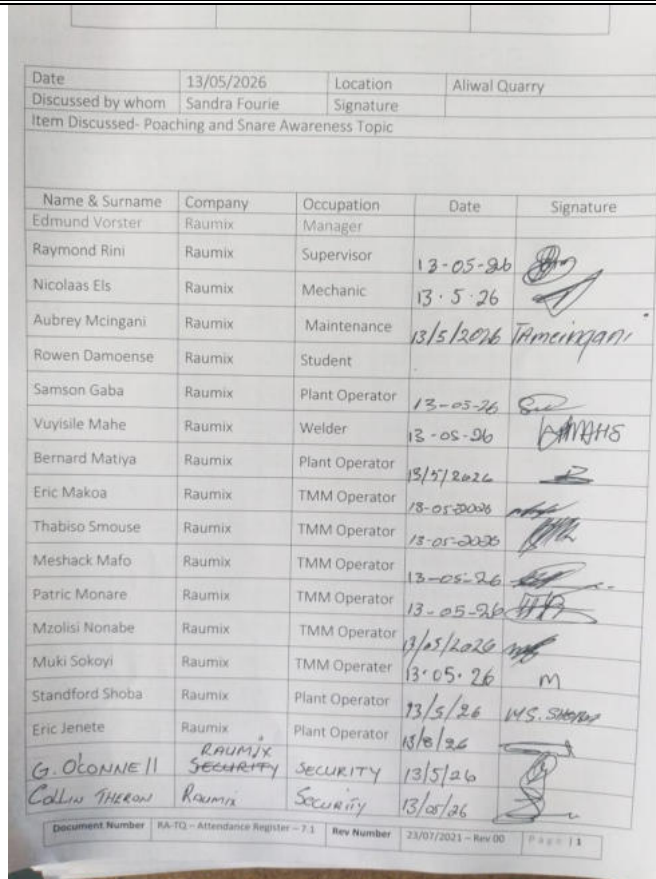 Date 13/05/2026 Location Aliwal Quarry
Discussed by whom Sandra Fourie Signature
Item Discussed- Poaching and Snare Awareness Topic
Name & Surname Company Occupation Date Signature
Edmund Vorster Raumix Manager
Raymond Rini Raumix Supervisor 13-05-26
Nicolaas Els Raumix Mechanic 13.5.26
Aubrey Mcingani Raumix Maintenance 13/5/2026 TAmcingani
Rowen Damoense Raumix Student
Samson Gaba Raumix Plant Operator 13-05-26
Vuyisile Mahe Raumix Welder 13-05-26
Bernard Matiya Raumix Plant Operator 13/5/2026
Eric Makoa Raumix TMM Operator 13-05-2026
Thabiso Smouse Raumix TMM Operator 13-05-2026
Meshack Mafo Raumix TMM Operator 13-05-26
Patric Monare Raumix TMM Operator 13-05-26
Mzolisi Nonabe Raumix TMM Operator 13/05/2026
Muki Sokoyi Raumix TMM Operater 13.05.26 M
Standford Shoba Raumix Plant Operator 13/5/26 M.S. Shoba
Eric Jenete Raumix Plant Operator
RAUMIX
G. OCONNEll SECURITY SECURITY 13/5/26
Collin THERON Raumix Security 13/05/26
Document Number RA-TQ – Attendance Register – 7.1 Rev Number 23/07/2021 – Rev 00 Page | 1